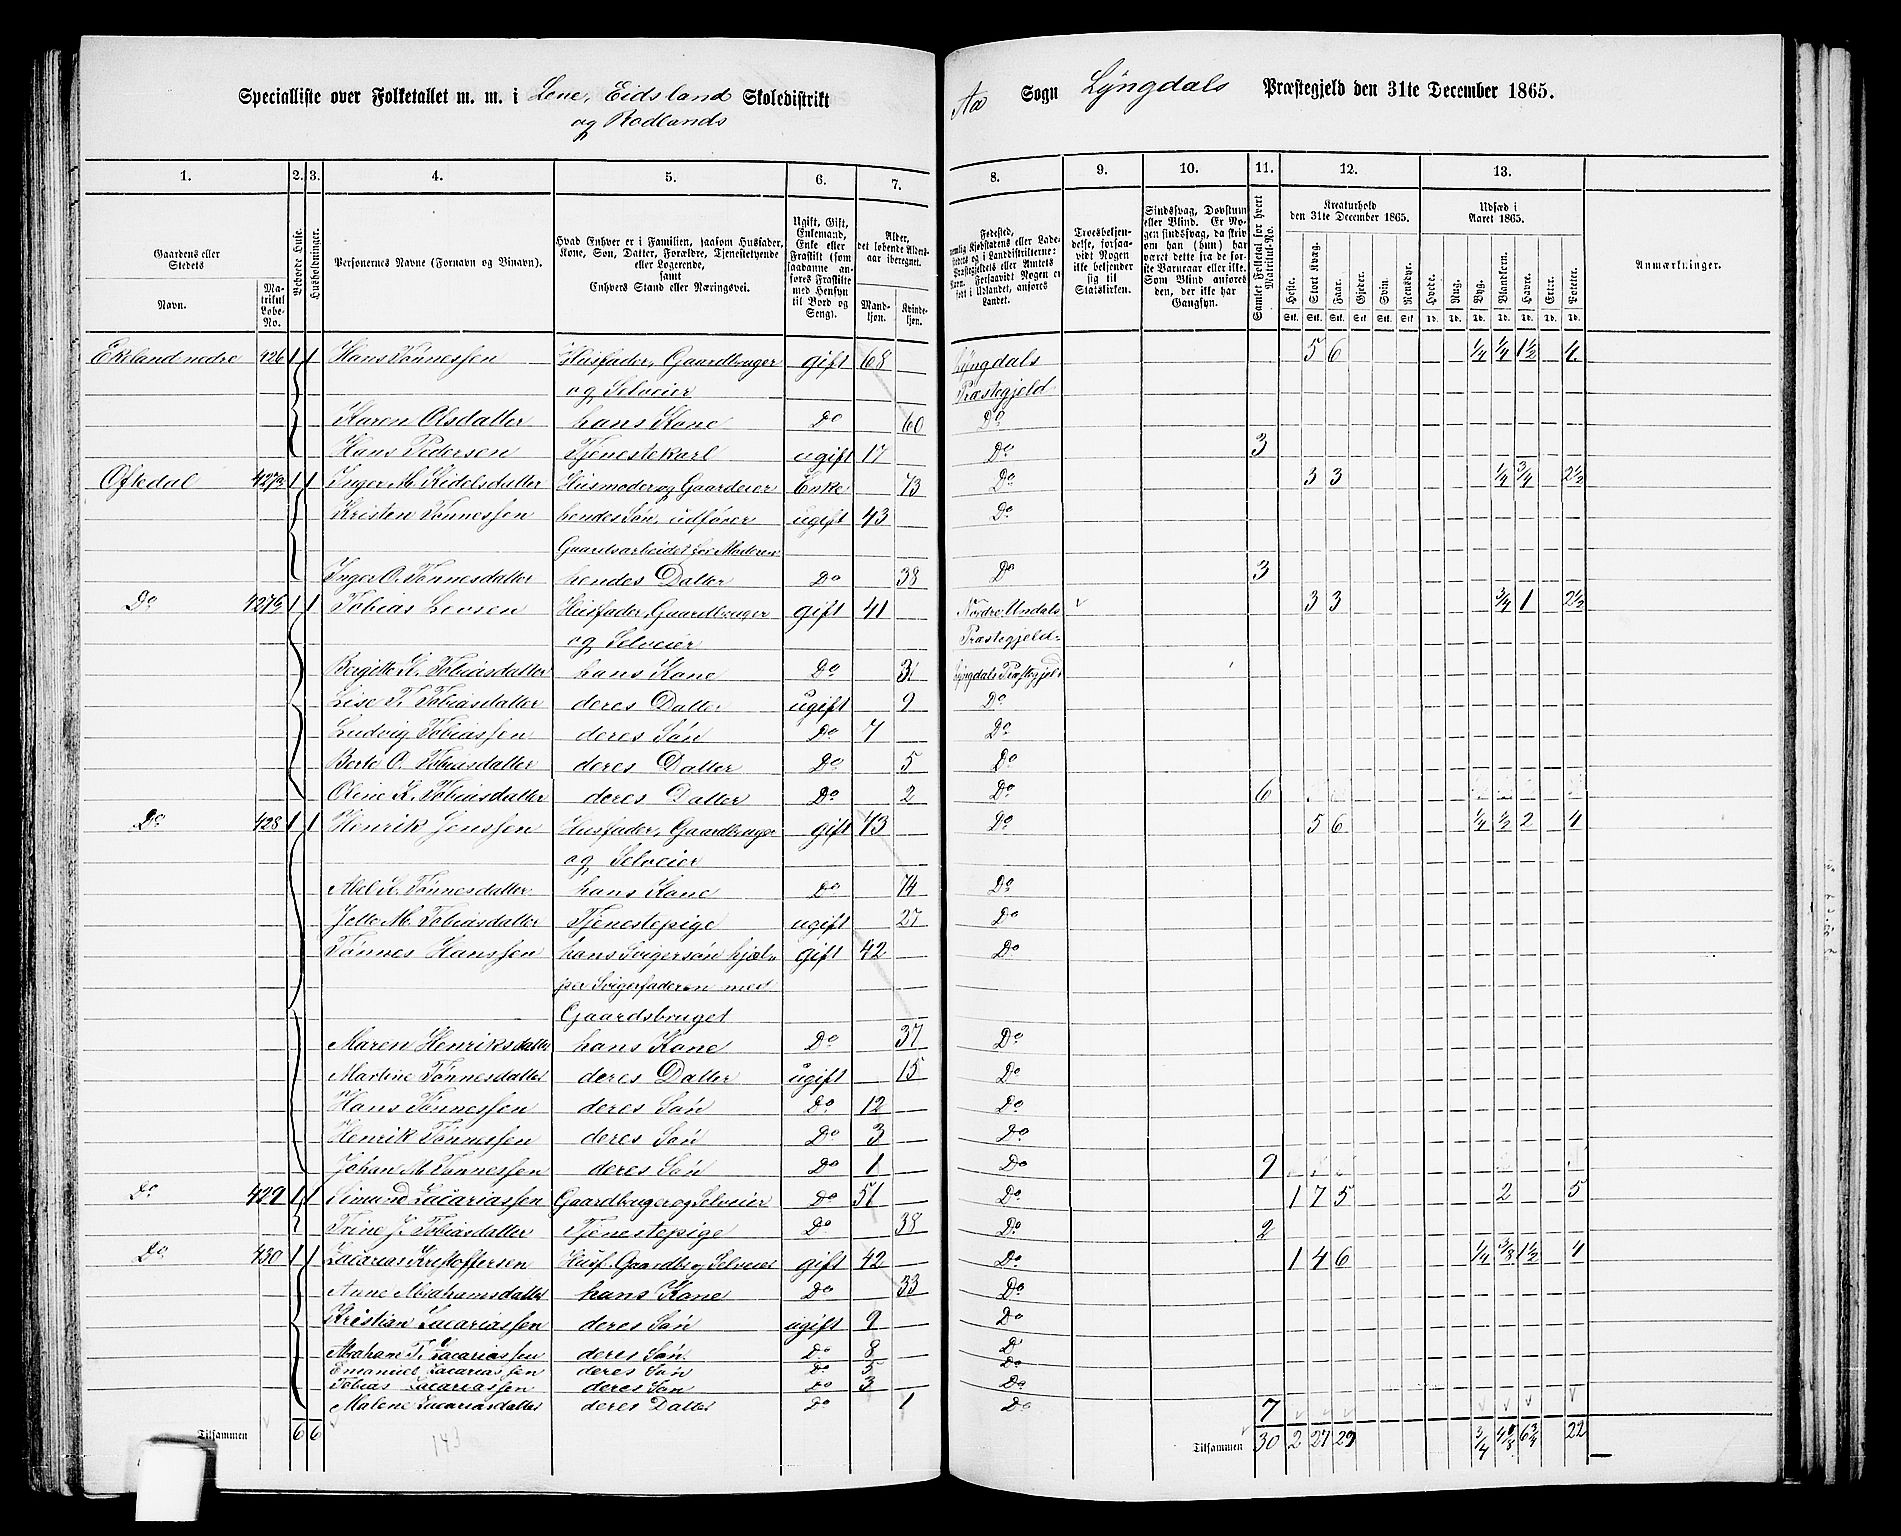 Specialliste over Folketallet m. m. i Lene, Eidsland Skoledistrikt
og Rødlands
Aa Sogn Lyngdals Præstegjeld den 31te December 1865.
1. 2. 3. 4. 5. 6. 7. 8. 9. 10. 11. 12. 13.
Gaardens eller Stedets Navn.
Matrikul Løbe-No.
Bebodde Huse.
Husholdninger.
Personernes Navne (Fornavn og Tilnavn).
Hvad Enhver er i Familien, saasom Husfader, Kone, Søn, Datter, Forældre, Tjenestetyende eller Logerende, samt Enhvers Stand eller Næringsvei.
Ugift, Gift, Enkemand, Enke eller Fraskilt (som saadanne anføres Fraskilte med Hensyn til Bord og Seng).
Alder, det løbende Alders-aar iberegnet.
Mand-kjøn. Kvinde-kjøn.
Fødested,
Troesbekjendelse, forsaavidt Nogen ikke bekjender sig til Statskirken.
Sindssvag, Døvstum eller Blind.
Samlet Folketal for hvert Matrikul-No.
Kreaturhold den 31te December 1865.
Udsæd i Aaret 1865.
Anmærkninger.
Heste. Stort Kvæg. Faar. Gjeder. Sviin. Rensdyr. Hvede. Rug. Byg. Blandkorn. Havre. Erter. Poteter.
Stk. Stk. Stk. Stk. Stk. Stk. Td. Td. Td. Td. Td. Td. Td.
Ekeland nedre 426 1 1 Hans Tønnessen Husfader, Gaardbruger gift 68 Lyngdals 5 6 1/4 1/4 1 1/2 4
og Selveier Præstegjeld
Karen Olsdatter hans Kone Do 60 Do
Hans Pedersen Tjenestekarl ugift 17 Do 3
Oftedal 427a 1 1 Inger M. Kidelsdatter Husmoder og Gaardeier Enke 73 Do 3 3 1/4 3/4 2 1/2
Kristen Tønnessen hendes Søn, udfører ugift 43 Do
Gaardsarbeidet for Moderen
Inger O. Tønnesdatter hendes Datter Do 38 Do 3
Do 427b 1 1 Tobias Levsen Husfader, Gaardbruger gift 41 Nordre Undals 3 3 3/4 1 2 1/2
og Selveier Præstegjeld
Bergitte K. Tobiasdatter hans Kone Do 31 Lyngdals Præstegjeld
Lise T. Tobiasdatter deres Datter ugift 9 Do
Ludvig Tobiassen deres Søn Do 7 Do
Berte O. Tobiasdatter deres Datter Do 5 Do
Oline K. Tobiasdatter deres Datter Do 2 Do 6
Do 428 1 1 Henrik Jenssen Husfader, Gaardbruger gift 73 Do 5 6 1/4 1/2 2 4
og Selveier
Abel K. Tønnesdatter hans Kone Do 74 Do
Jette M. Tobiasdatter Tjenestepige ugift 27 Do
Tønnes Hanssen hans Svigersøn hjæl- gift 42 Do
per Svigerfaderen med
Gaardsbruget
Maren Henriksdatter hans Kone Do 37 Do
Martine Tønnesdatter deres Datter ugift 15 Do
Hans Tønnessen deres Søn Do 12 Do
Henrik Tønnessen deres Søn Do 3 Do
Johan M. Tønnessen deres Søn Do 1 Do 9
Do 429 1 1 Simund Zacariassen Gaardbruger og Selveier Do 51 Do 1 7 5 2 5
Trine J. Tobiasdatter Tjenestepige Do 38 Do 2
Do 430 1 1 Zacarias Kristoffersen Husf. Gaardb. og Selveier gift 42 Do 1 4 6 1/4 3/8 1 1/2 4
Anne Abrahamsdatter hans Kone Do 33 Do
Kristian Zacariassen deres Søn ugift 9 Do
Abraham T. Zacariassen deres Søn Do 8 Do
Emanuel Zacariassen deres Søn Do 5 Do
Tobias Zacariassen deres Søn Do 3 Do
Malene Zacariasdatter deres Datter Do 1 Do 7
Tilsammen 6 6 Tilsammen 30 2 27 29 3/4 6 3/4 22
143